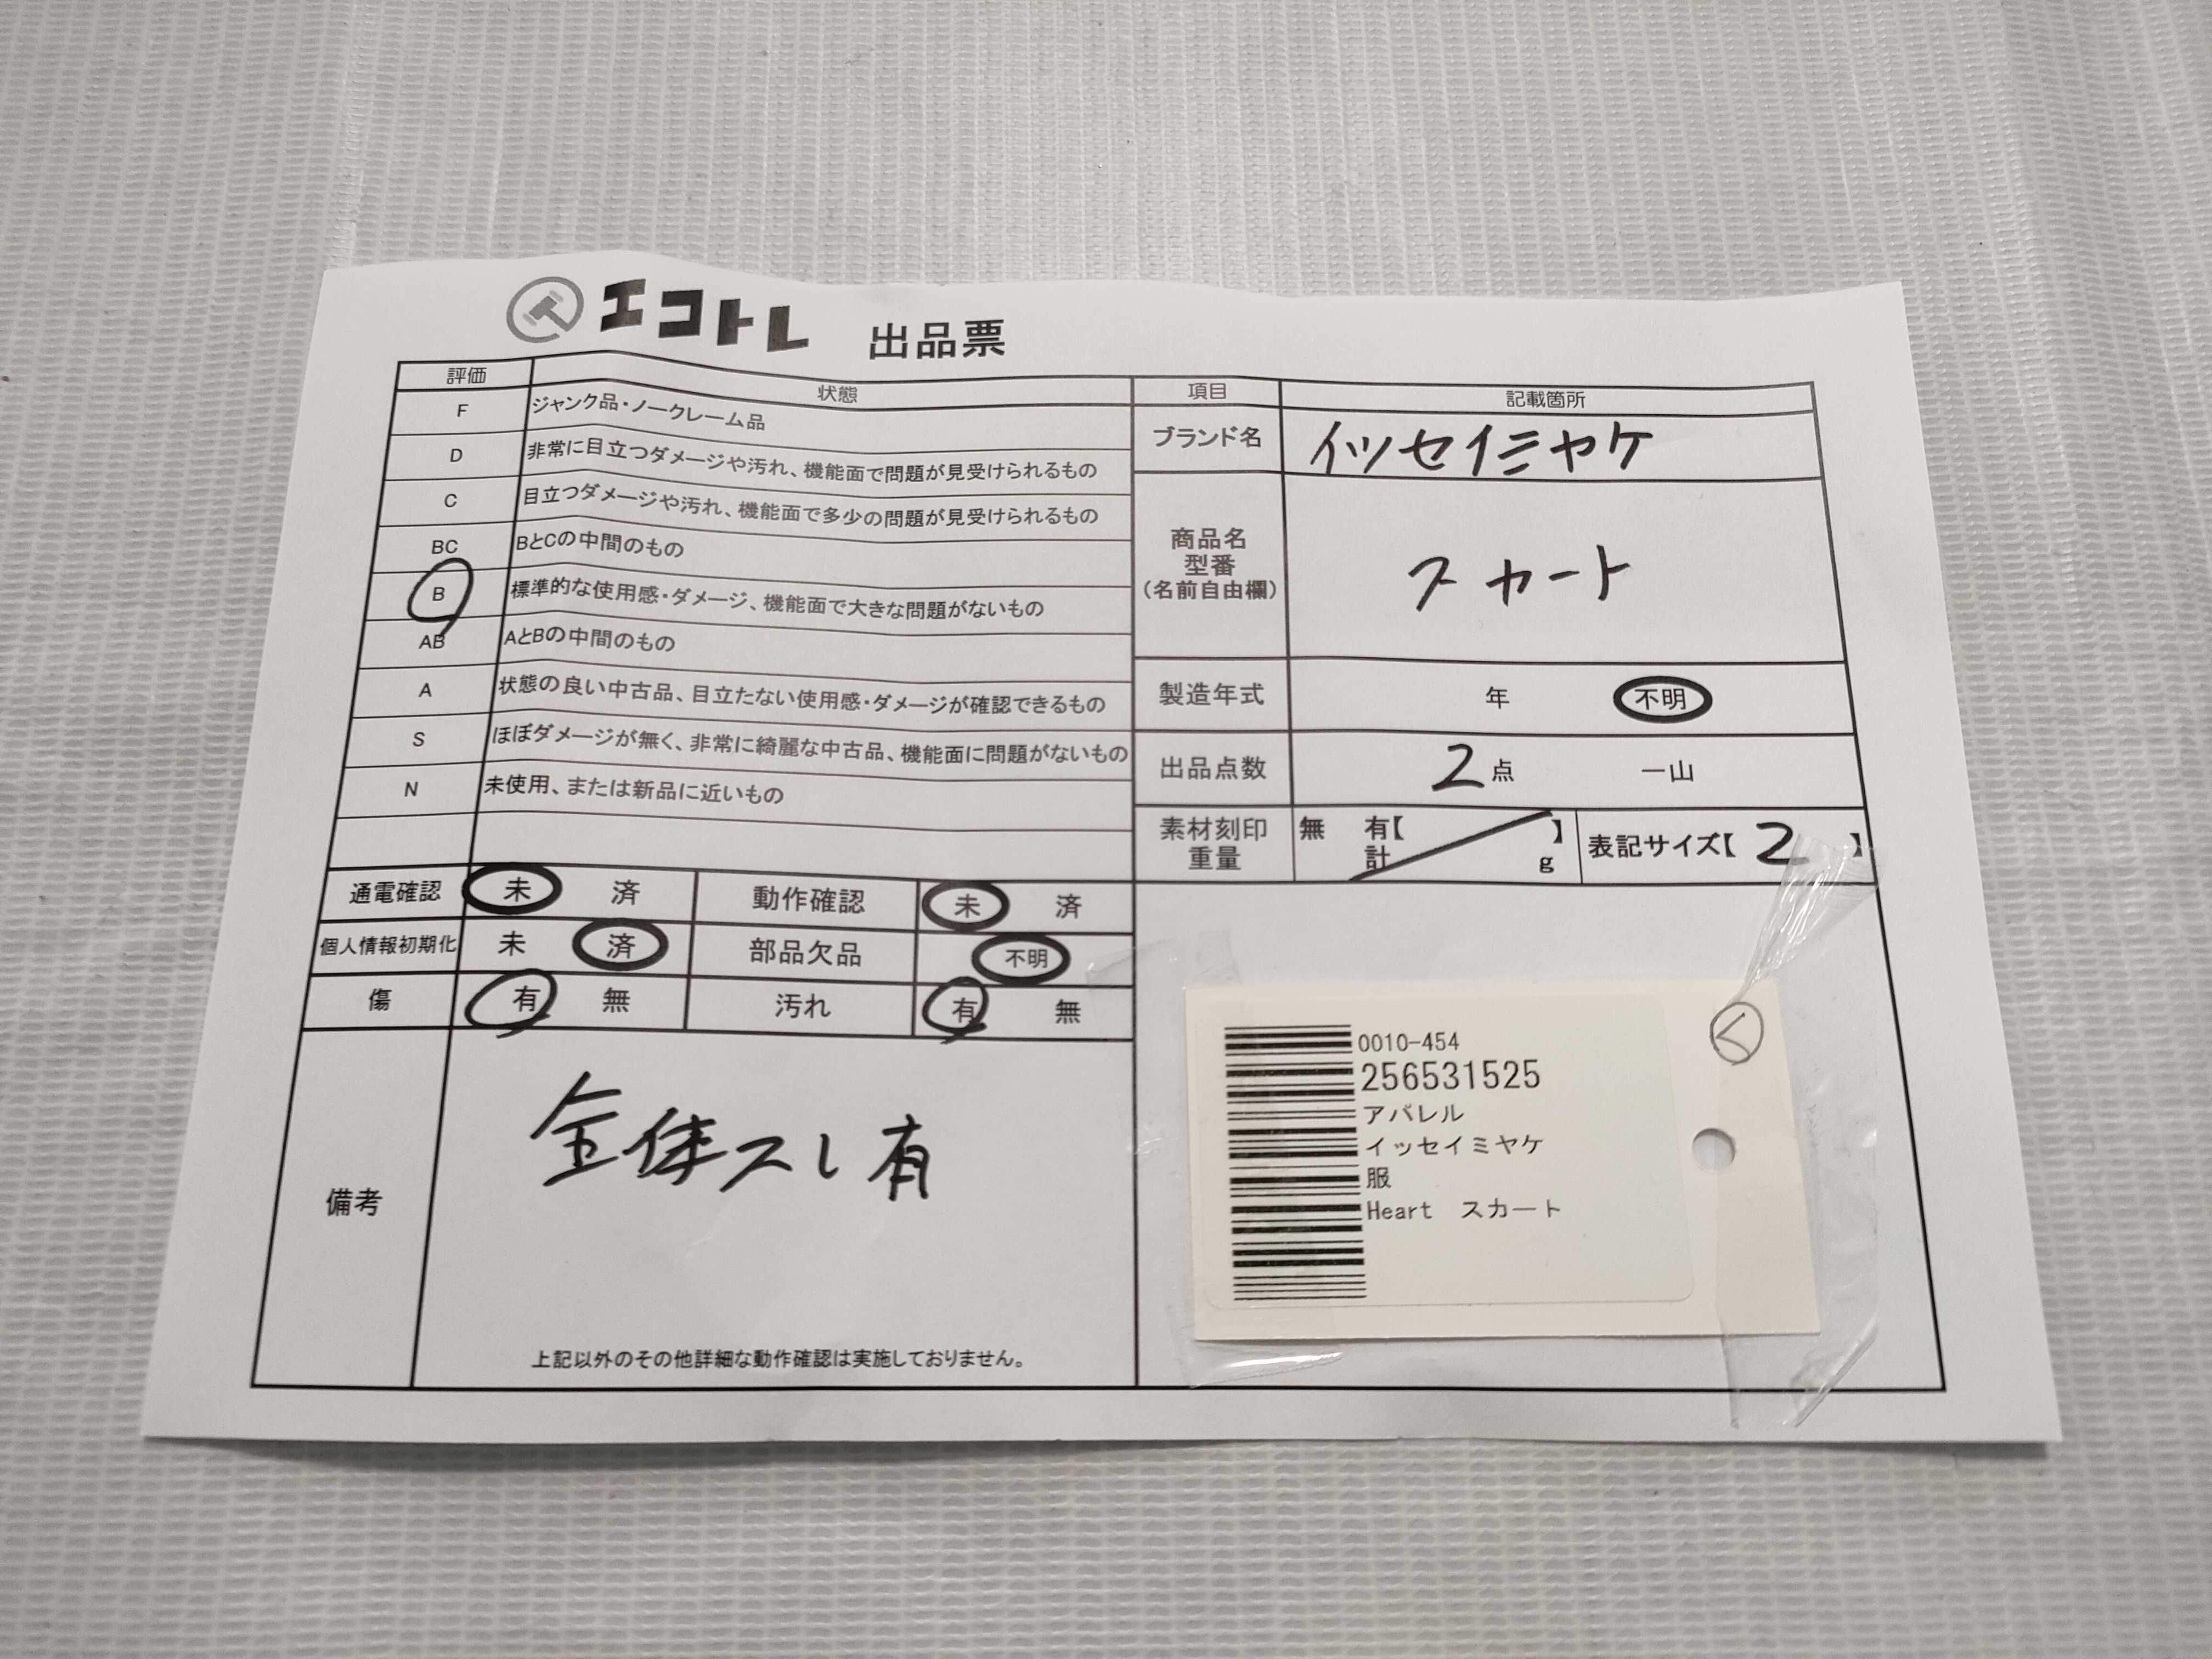 エコトレ 出品票
評価 状態
F ジャンク品・ノークレーム品
D 非常に目立つダメージや汚れ、機能面で問題が見受けられるもの
C 目立つダメージや汚れ、機能面で多少の問題が見受けられるもの
BC BとCの中間のもの
B 標準的な使用感・ダメージ、機能面で大きな問題がないもの
AB AとBの中間のもの
A 状態の良い中古品、目立たない使用感・ダメージが確認できるもの
S ほぼダメージが無く、非常に綺麗な中古品、機能面に問題がないもの
N 未使用、または新品に近いもの
通電確認 未 済 動作確認 未 済
個人情報初期化 未 済 部品欠品 不明
傷 有 無 汚れ 有 無
備考
全体スレ有
上記以外のその他詳細な動作確認は実施しておりません。
項目 記載箇所
ブランド名 イッセイミヤケ
商品名
型番
（名前自由欄）
スカート
製造年式 年 不明
出品点数 2点 一山
素材刻印 無 有【 】
重量 計 g
表記サイズ【 2 】
0010-454
256531525
アパレル
イッセイミヤケ
服
Heart スカート
く